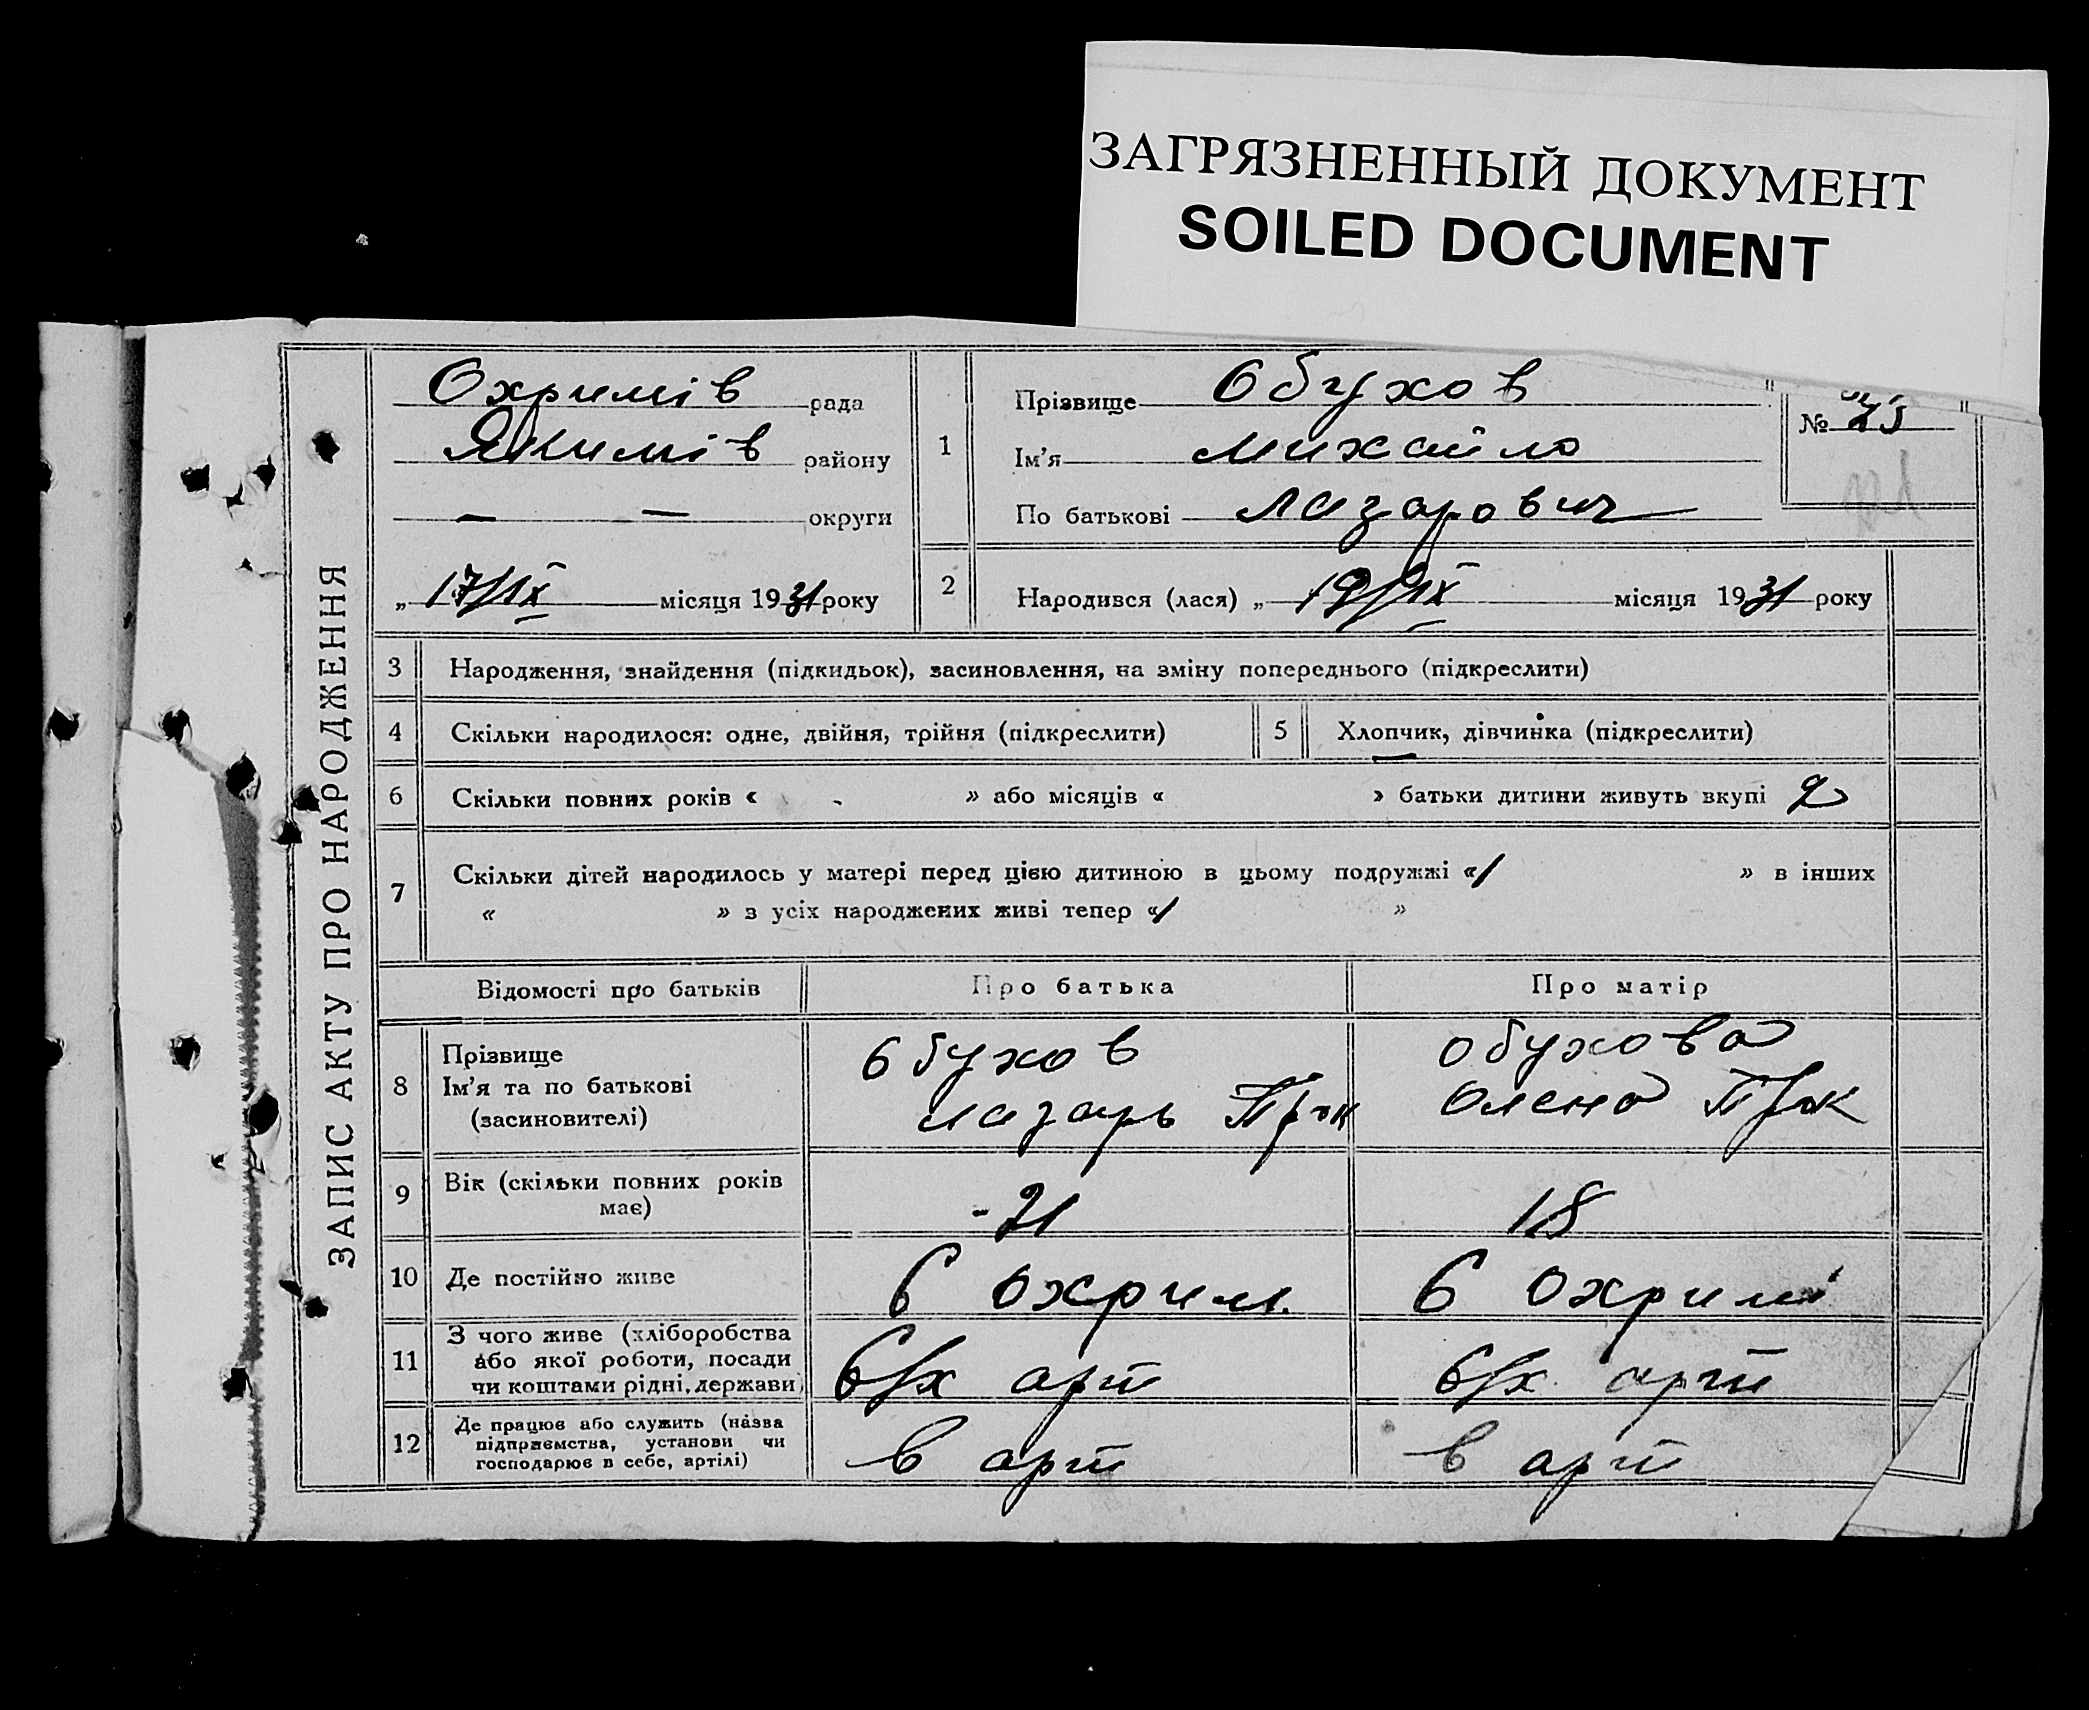 ЗАГРЯЗНЕННЫЙ ДОКУМЕНТ
SOILED DOCUMENT
ЗАПИС АКТУ ПРО НАРОДЖЕННЯ
Охримів рада
Якимів району
— — округи
„ 17/IX місяця 1931 року
1
Прізвище Обухов
Ім'я Михайло
По батькові Лазарович
№
2 Народився (лася) „ місяця 1931 року
3 Народження, знайдення (підкидьок), засиновлення, на зміну попереднього (підкреслити)
4 Скільки народилося: одне, двійня, трійня (підкреслити) 5 Хлопчик, дівчинка (підкреслити)
6 Скільки повних років « » або місяців « » батьки дитини живуть вкупі 2
7 Скільки дітей народилось у матері перед цією дитиною в цьому подружжі «1 » в інших
« » з усіх народжених живі тепер «1 »
Відомості про батьків Про батька Про матір
8 Прізвище
Ім'я та по батькові
(засиновителі)
Обухов
Лазарь Прок
Обухова
Олена Прок
9 Вік (скільки повних років
має)
21 18
10 Де постійно живе в Охрим. в Охримі
11 З чого живе (хліборобства
або якої роботи, посади
чи коштами рідні, держави)
с/х арт с/х арт
12 Де працює або служить (назва
підприємства, установи чи
господарює в себе, артілі)
в арт в арт